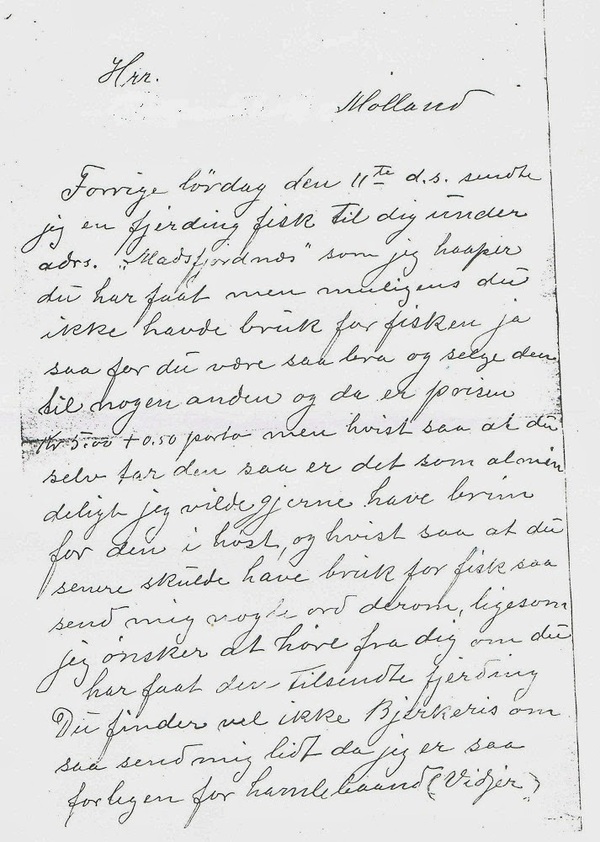 Hrr.
Molland
Forrige lördag den 11te d.s. sendte
jeg en fjerding fisk til dig under
adrs. "Madsfjordnæs" som jeg haaper
du har faat men muligens du
ikke havde bruk for fisken ja
saa for du være saa bra og selge den
til nogen anden og da er prisen
Kr 5.00 + 0.50 porto men hvist saa at du
selv tar den saa er det som almin
deligt jeg vilde gjerne have brim
for den i höst, og hvist saa at du
senere skulde have bruk for fisk saa
send mig nogle ord derom, ligesom
jeg önsker at höre fra dig om du
har faat den tilsendte fjerding
Du finder vel ikke Bjerkeris om
saa send mig lidt da jeg er saa
forlegen for hamlebaand (Vidjer)